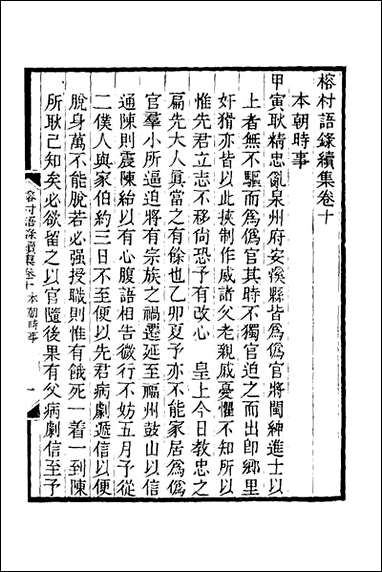 榕村語錄續集卷十
本朝時事
甲寅耿精忠亂泉州府安溪縣皆為偽官將閩紳進士以
上者無不驅而為偽官其時不獨官迫之而出即鄉里
奸猾亦皆以此挾制作威諸父老親戚憂懼不知所以
惟先君立志不移尚恐予有改心　皇上今日教忠之
扁先大人真當之有餘也乙卯夏予亦不能家居為偽
官羣小所逼迫將有宗族之禍遷延至福州鼓山以信
通陳則震陳紿以有心腹語相告微行不妨五月予從
二僕人與家伯約三日不至便以先君病劇遞信以便
脫身萬不能脫若必强授職則惟有餓死一着一到陳
所耿已知矣必欲留之以官隨後果有父病劇信至予
榕村語錄續集卷十　本朝時事　一